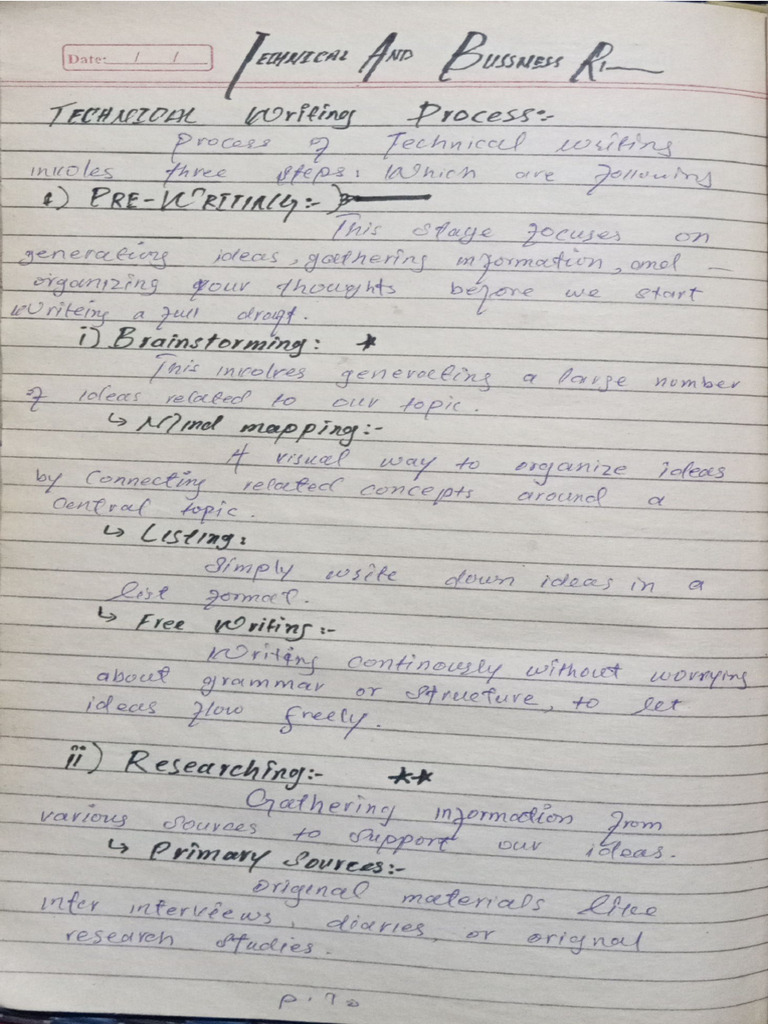 Date: / /
TECHNICAL AND BUSSNESS RI
TECHNICAL Writing Process:-
Process of Technical writing
involes three steps: Which are following
1) PRE-WRITING:-
This stage focuses on
generating ideas, gathering information, and
organizing your thoughts before we start
writeing a full draft.
i) Brainstorming: *
This involves generating a large number
of ideas related to our topic.
↳ Mind mapping:-
A visual way to organize ideas
by connecting related concepts around a
central topic.
↳ Listing:
Simply write down ideas in a
list format.
↳ Free Writing:-
Writing continously without worrying
about grammar or structure, to let
ideas flow freely.
ii) Researching:- **
Gathering information from
various sources to support our ideas.
↳ Primary Sources:-
Original materials like
inter interviews, diaries, or orignal
research studies.